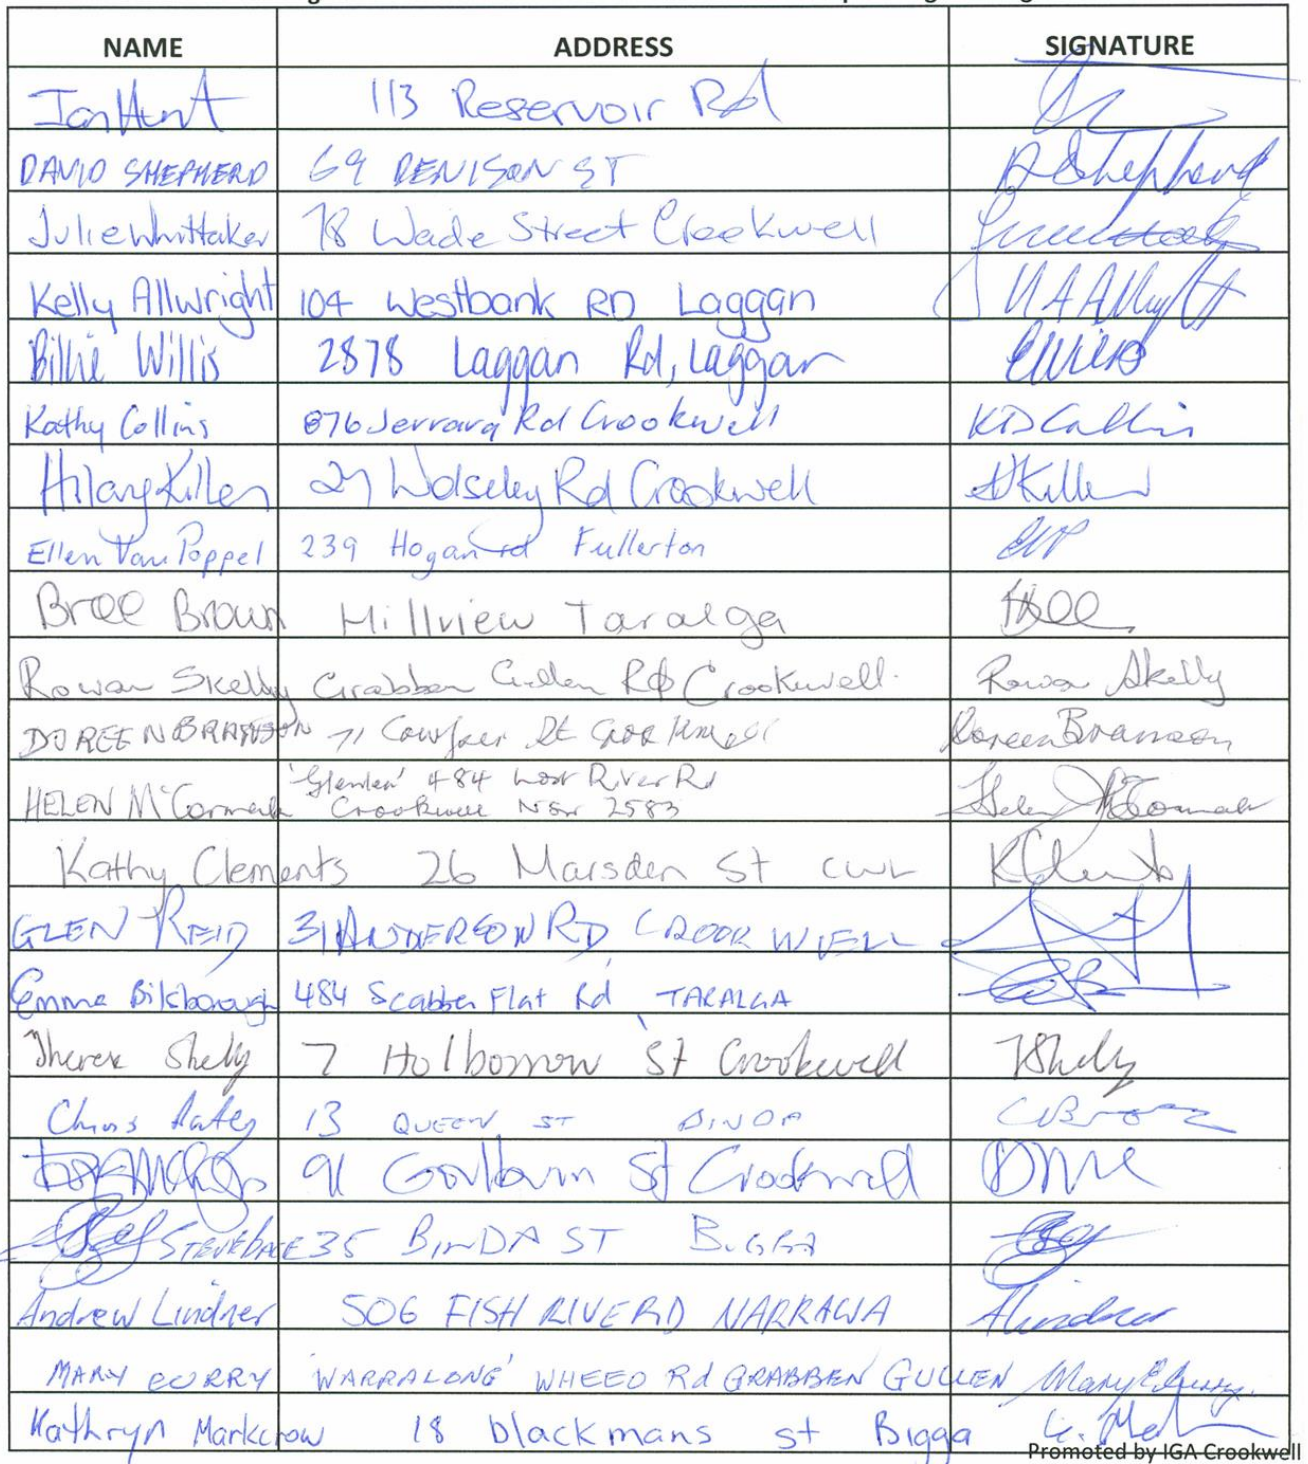 NAME ADDRESS SIGNATURE
Ian Hunt 113 Reservoir Rd
DAVID SHEPHERD 69 DENISON ST D Shepherd
Julie Whittaker 78 Wade Street Crookwell
Kelly Allwright 104 Westbank RD Laggan
Billie Willis 2878 Laggan Rd, Laggan
Kathy Collins 876 Jerrara Rd Crookwell KD Collins
Hilary Killen 27 Wolseley Rd Crookwell HKillen
Ellen Van Poppel 239 Hogan rd Fullerton EVP
Bree Brown Hillview Taralga
Rowan Skelly Grabben Gullen Rd Crookwell. Rowan Skelly
DOREEN BRANSON 71 Cowper St Crookwell Doreen Branson
'Glenlea' 484 River Rd
HELEN McCormack Crookwell NSW 2583 Helen McCormack
Kathy Clements 26 Marsden St CWL KClements
GLEN REID 31 ANDERSON RD CROOKWELL
Emma Bilsborough 484 Scabben Flat Rd TARALGA
Therese Shelly 7 Holborrow St Crookwell TShelly
Chris 13 QUEEN ST BINDA
91 Goulburn St Crookwell
STEVE 35 BINDA ST BIGGA
Andrew Lindner 506 FISH RIVE RD NARRAWA ALindner
MARY CURRY 'WARRALONG' WHEEO Rd GRABBEN GULLEN Mary E Curry.
Kathryn Markcrow 18 blackmans st Bigga
Promoted by IGA Crookwell